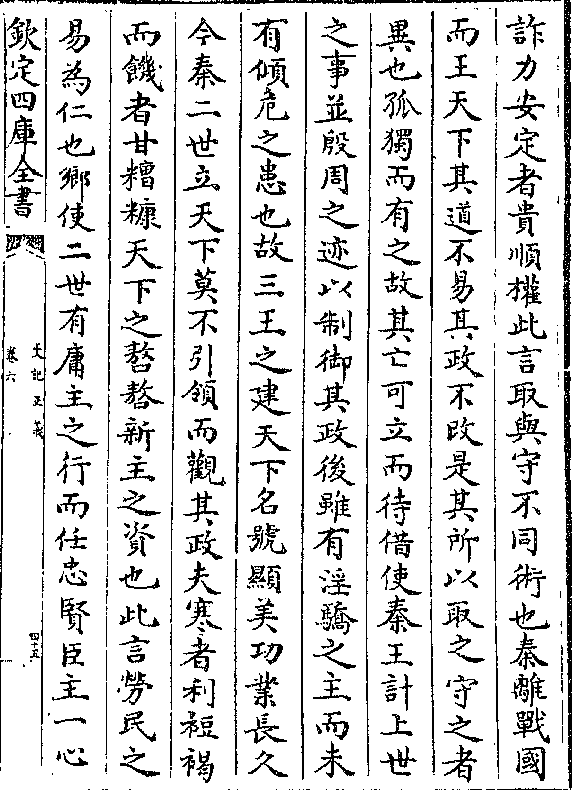 詐力安定者貴順權此言取與守不同術也秦離戰國
而王天下其道不易其政不改是其所以取之守之者
異也孤獨而有之故其亡可立而待借使秦王計上世
之事並殷周之迹以制御其政後雖有淫驕之主而未
有傾危之患也故三王之建天下名號顯美功業長久
今秦二世立天下莫不引領而觀其政夫寒者利裋褐
而饑者甘糟糠天下之嗸嗸新主之資也此言勞民之
易為仁也鄉使二世有庸主之行而任忠賢臣主一心
欽定四庫全書
史記正義
卷六
四十五